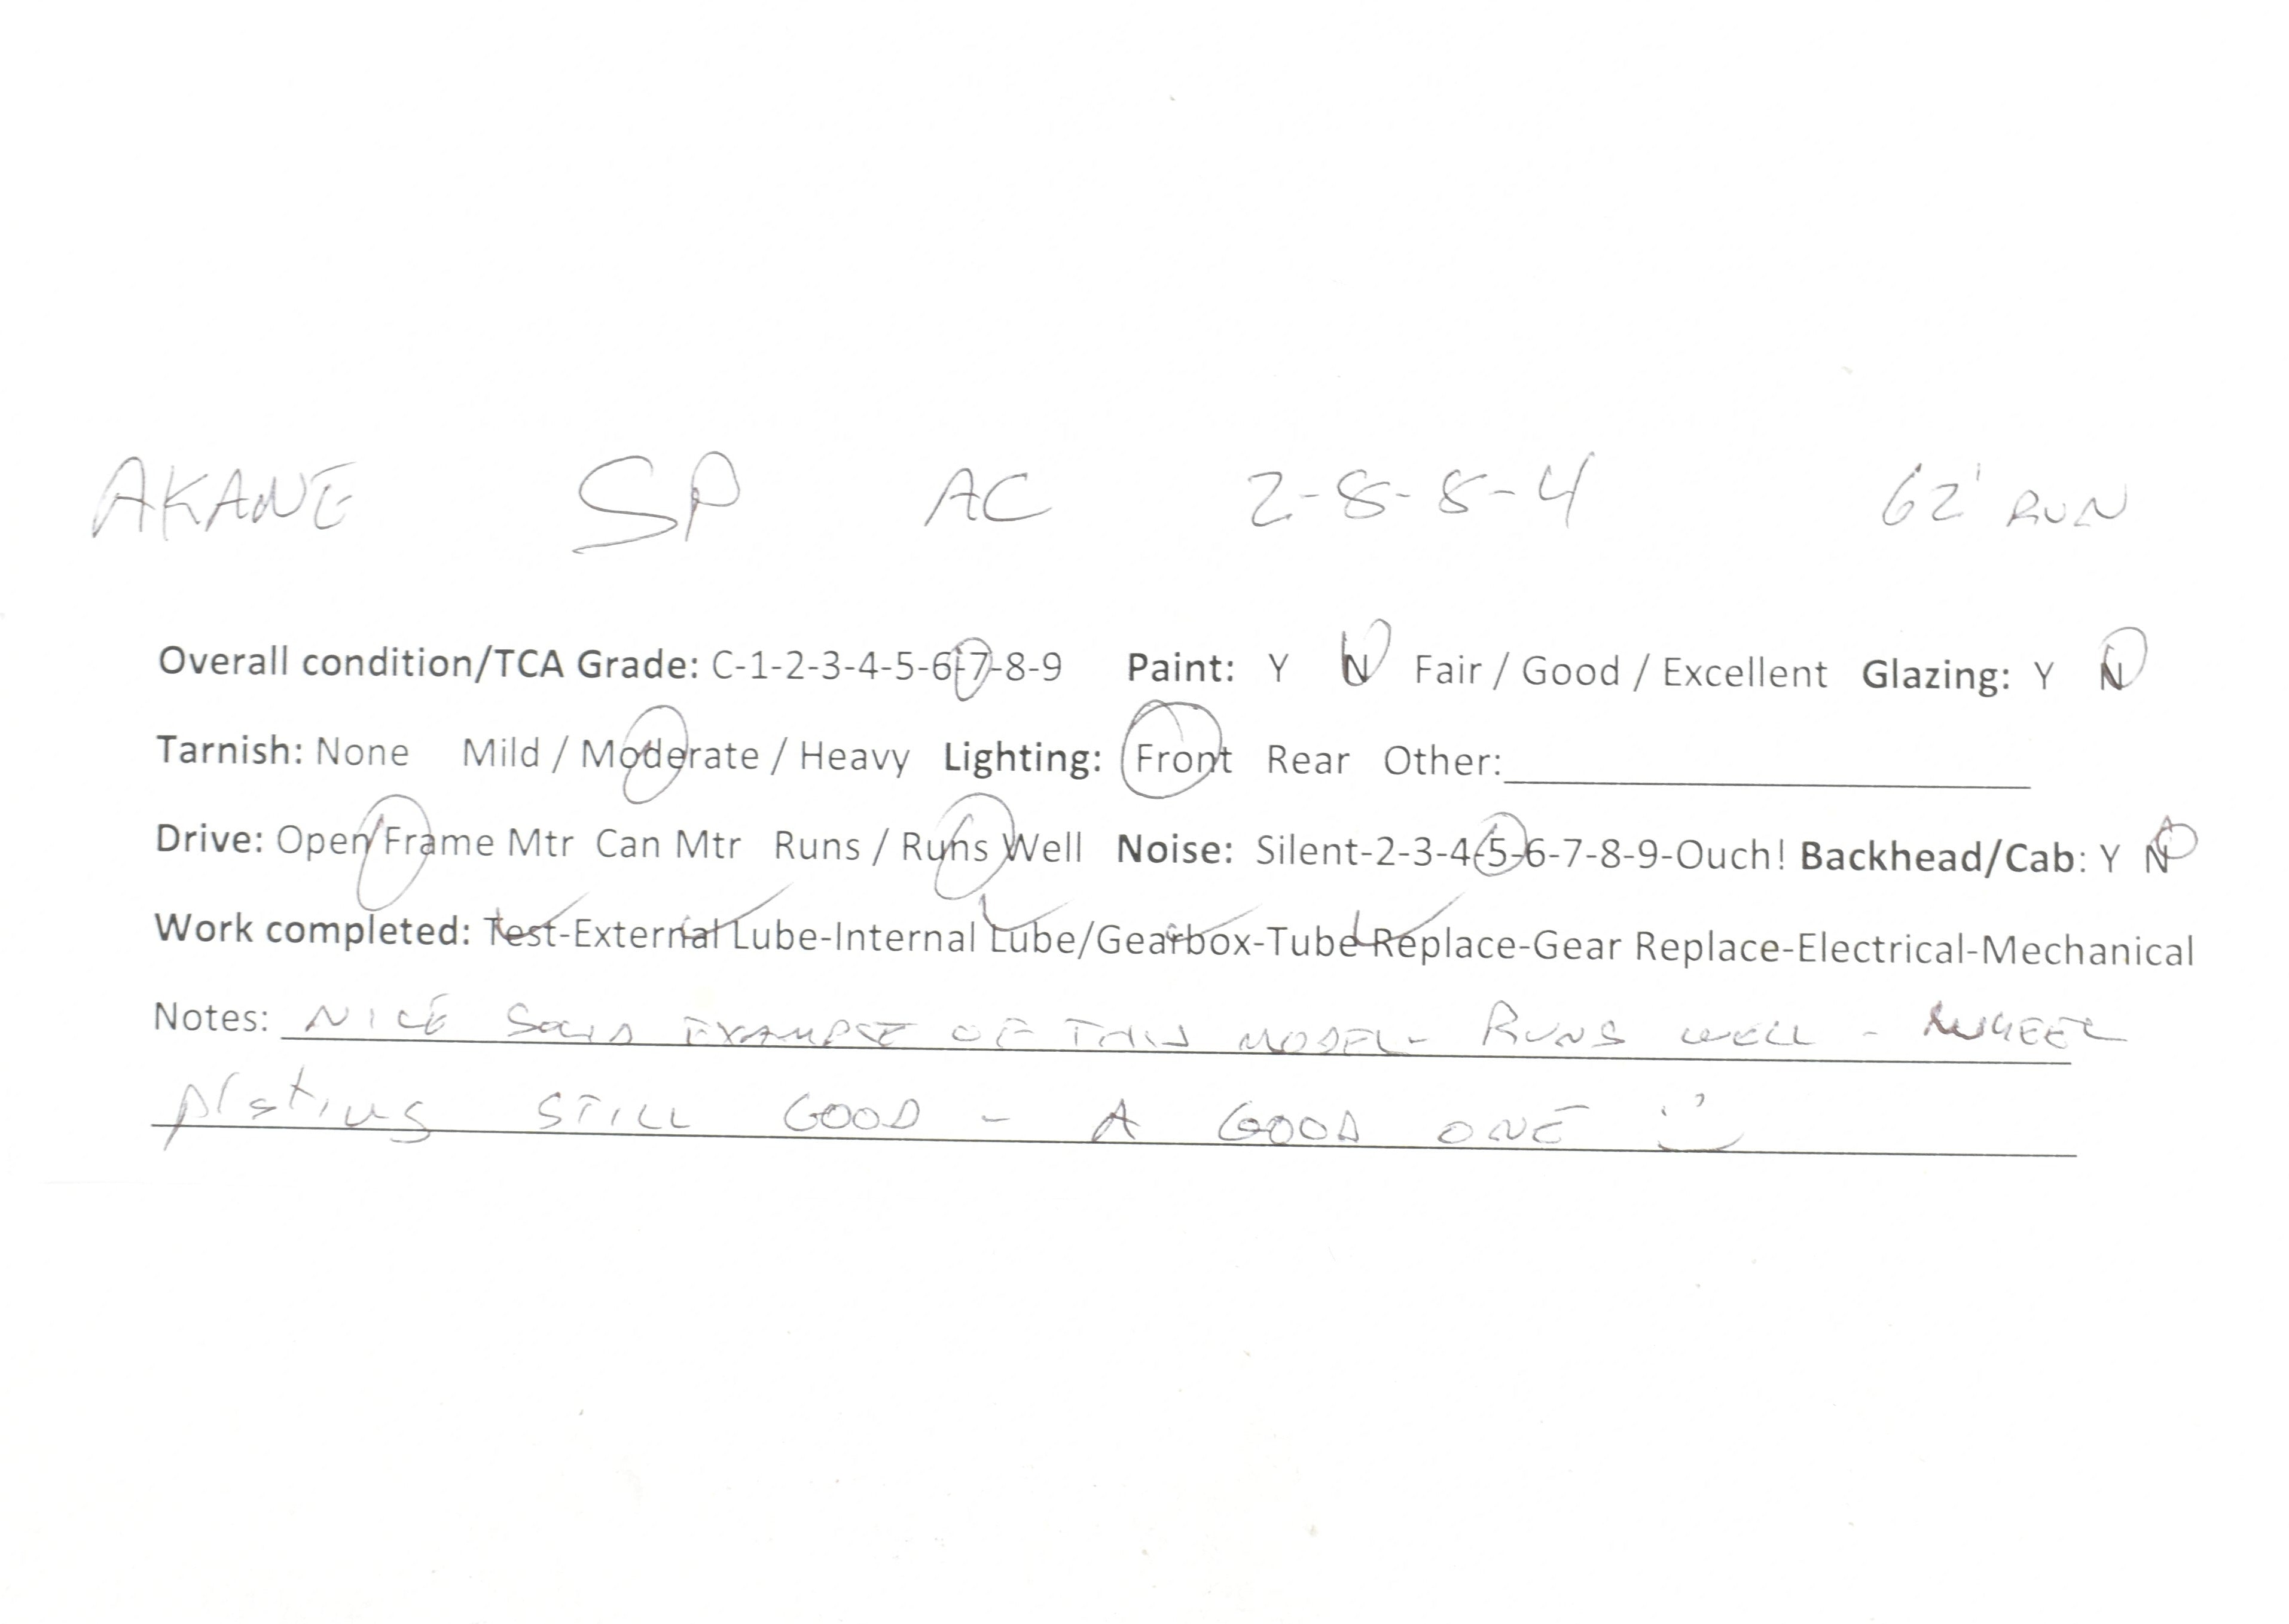 AKANE SP AC 2-8-8-4 62' RUN
Overall condition/TCA Grade: C-1-2-3-4-5-6-7-8-9 Paint: Y N Fair / Good / Excellent Glazing: Y N
Tarnish: None Mild / Moderate / Heavy Lighting: Front Rear Other:
Drive: Open/Frame Mtr Can Mtr Runs / Runs Well Noise: Silent-2-3-4-5-6-7-8-9-Ouch! Backhead/Cab: Y N
Work completed: Test-External Lube-Internal Lube/Gearbox-Tube Replace-Gear Replace-Electrical-Mechanical
Notes: NICE SOLID EXAMPLE OF THIS MODEL - RUNS WELL - WHEEL
plating STILL GOOD - A GOOD ONE